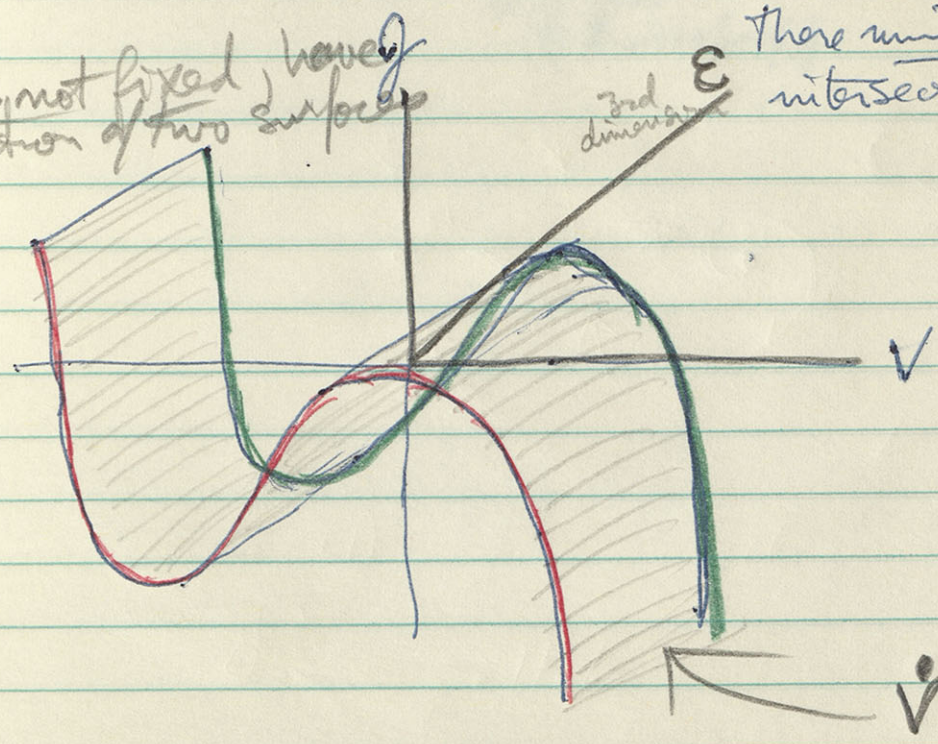 not fixed, have
tion of two surfaces
y
ε
3rd
dimension
There
intersec
V
V̇